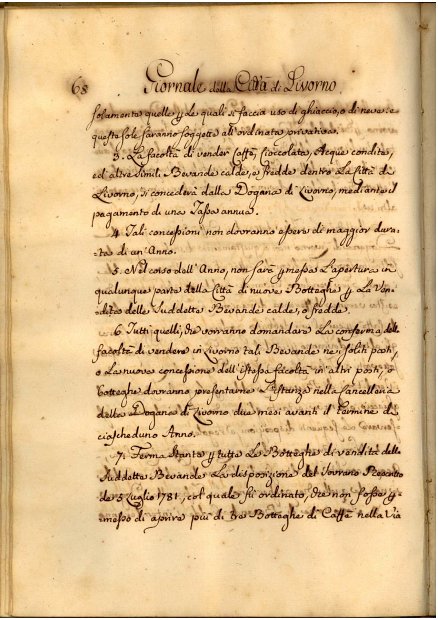 68 Giornale della Città di Livorno.
solamente quelle p le quali si faccia uso di ghiaccio, o di neve: e
queste sole saranno soggette all'ordinata privativa.
3. La facoltà di vender Caffè, Cioccolata, Acque condite,
ed altre simili Bevande calde, o fredde dentro la Città di
Livorno, si concederà dalla Dogana di Livorno, mediante il
pagamento di una Tassa annua.
4. Tali concessioni non dovranno essere di maggior dura-
ta di un'Anno.
5. Nel corso dell'Anno, non sarà pmessa l'apertura in
qualunque parte della Città di nuove Botteghe p la Ven-
dita delle suddette Bevande calde, o fredde.
6. Tutti quelli, che vorranno domandare la conferma della
facoltà di vendere in Livorno tali Bevande nei soliti posti,
o la nuova concessione dell'istessa facoltà in altri posti, o
Botteghe dovranno presentarne l'Istanza nella Cancelleria
della Dogana di Livorno due mesi avanti il termine di
ciascheduno Anno.
7. Ferma stante p tutte le Botteghe di vendita delle
suddette Bevande la disposizione del Sovrano Rescritto
de 5 Luglio 1781, col quale fù ordinato, che non fosse p-
messo di aprire più di tre Botteghe di Caffè nella Via